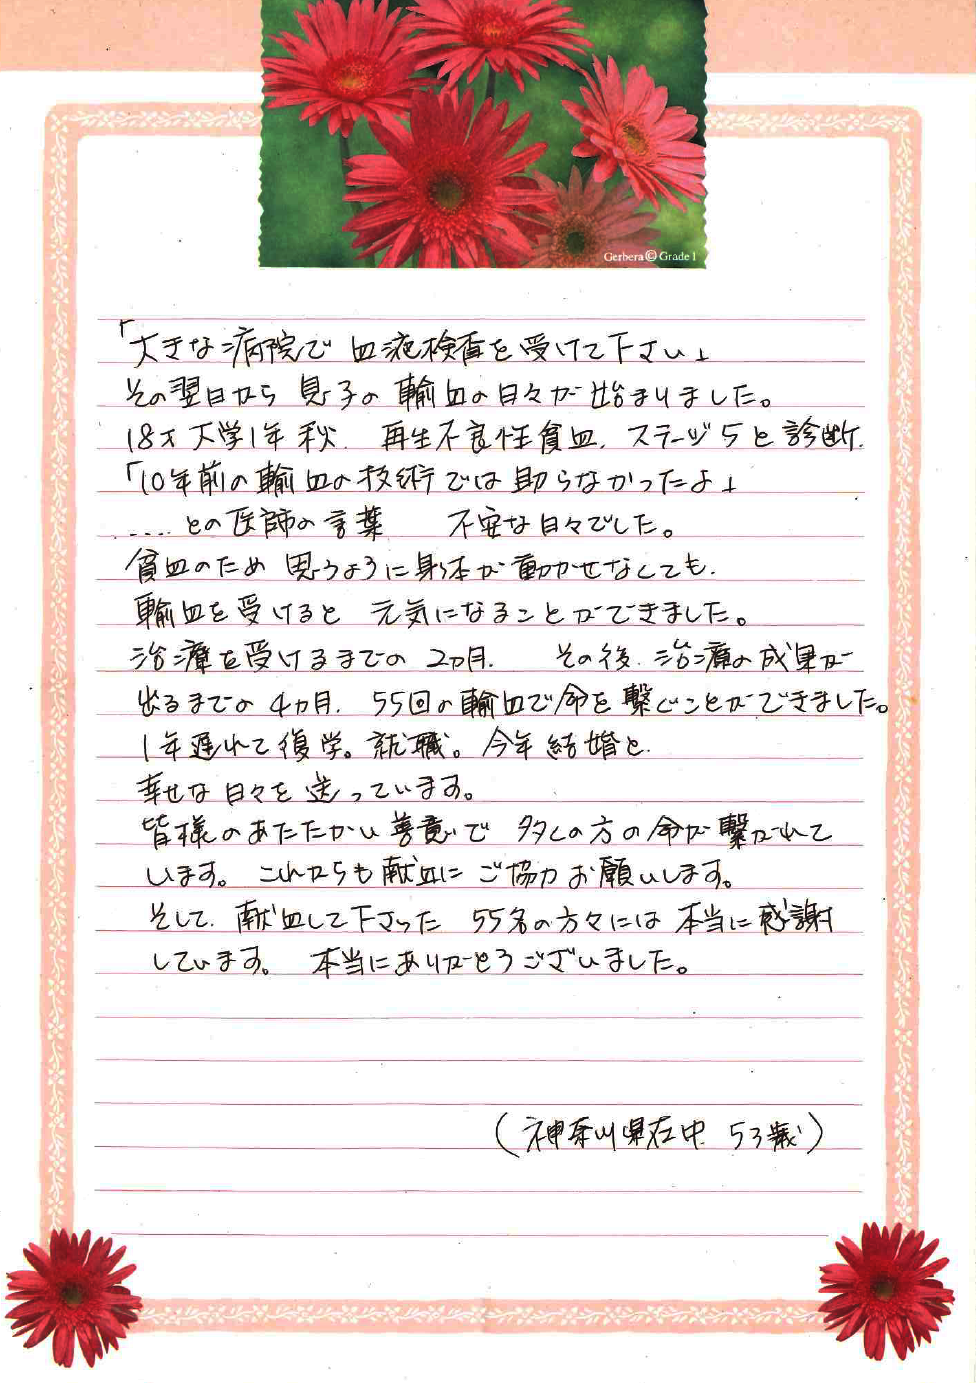 Gerbera © Grade 1
「大きな病院で 血液検査を受けて下さい」
その翌日から 息子の輸血の日々が始まりました。
18才 大学1年 秋、再生不良性貧血、ステージ5と診断、
「10年前の輸血の技術では助らなかったよ」
.....との医師の言葉 不安な日々でした。
貧血のため 思うように身体が動かせなくても、
輸血を受けると 元気になることができました。
治療を受けるまでの 2カ月、 その後、治療の成果が
出るまでの 4カ月、55回の輸血で命を繋ぐことができました。
1年遅れて復学。就職。今年結婚と、
幸せな日々を送っています。
皆様のあたたかい善意で 多くの方の命が繋がれて
います。これからも献血にご協力お願いします。
そして、献血して下さった 55名の方々には本当に感謝
しています。 本当にありがとうございました。
(神奈川県在中 53歳)